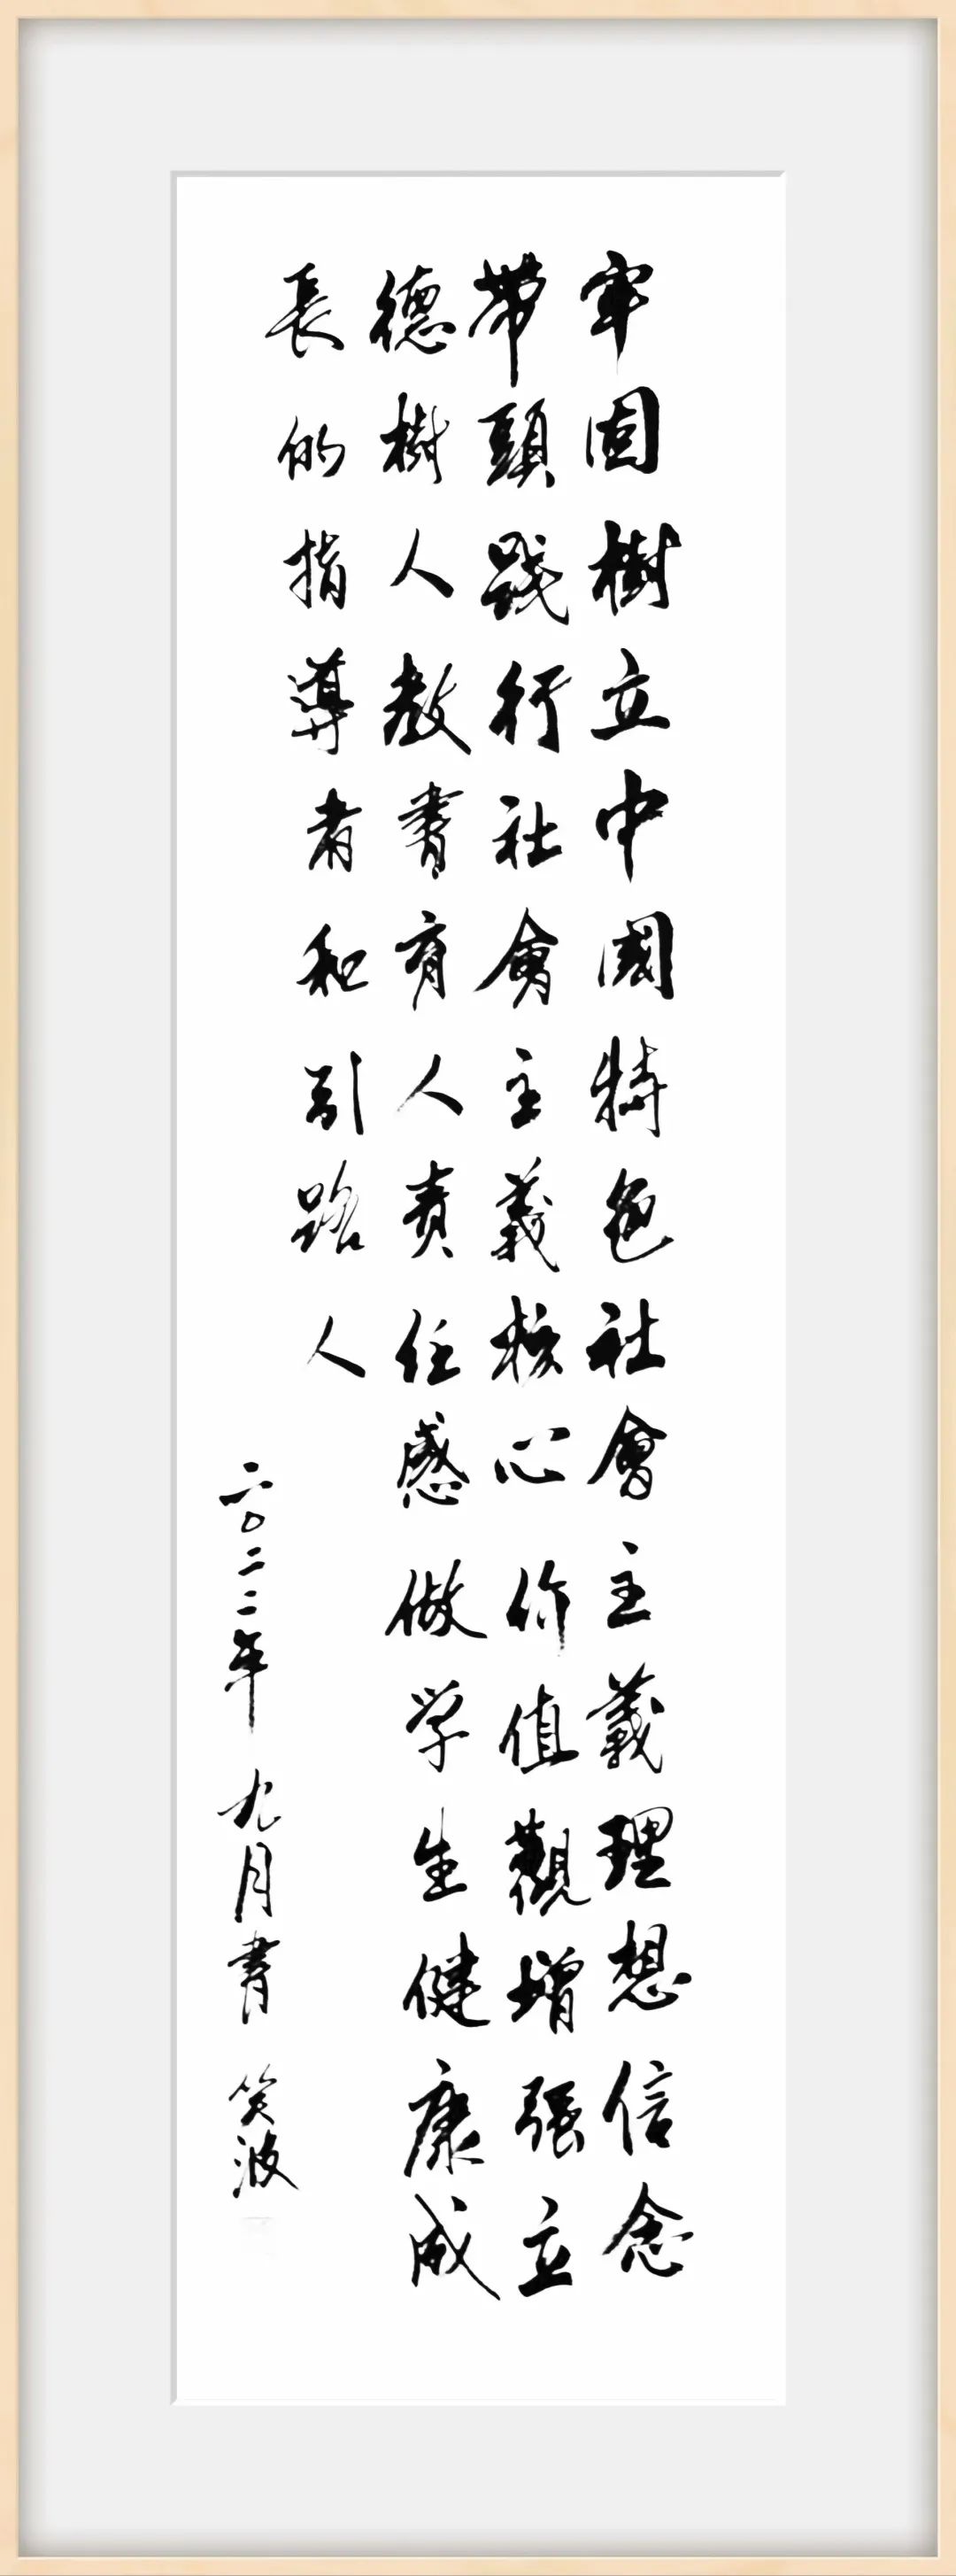 牢固樹立中國特色社會主義理想信念
帶頭踐行社會主義核心价值觀增强立
德樹人教書育人責任感做学生健康成
長的指導者和引路人
二〇二二年九月書 笑波